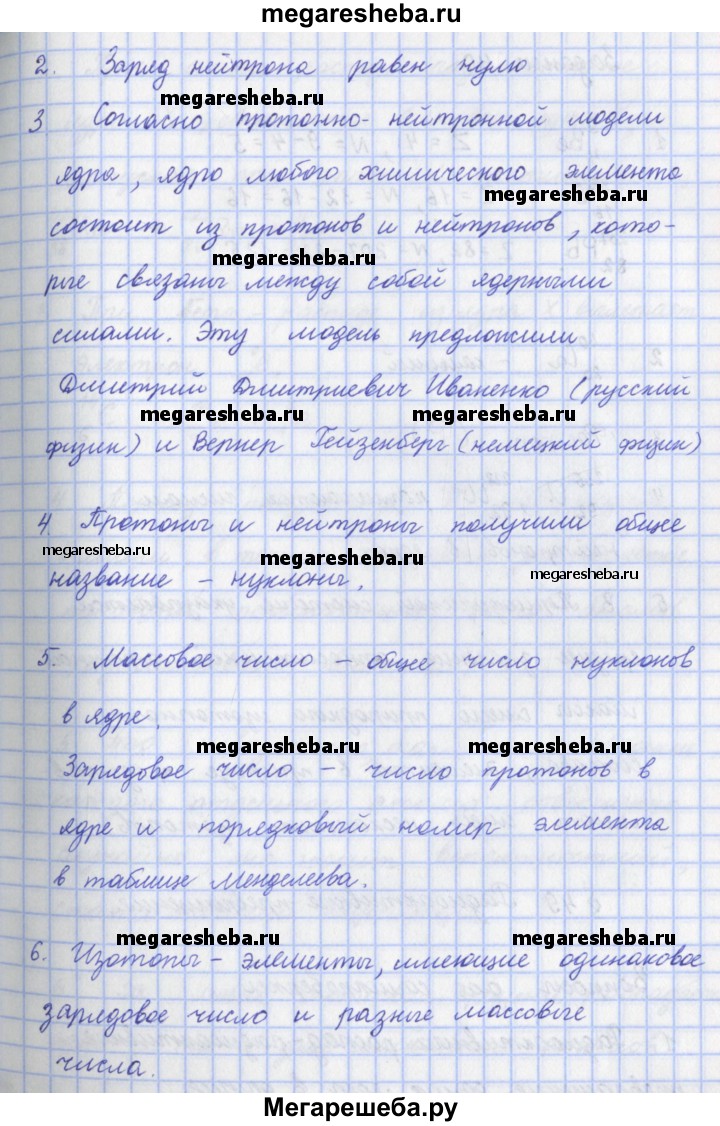 megaresheba.ru
2. Заряд нейтрона равен нулю
megaresheba.ru
3 Согласно протонно-нейтронной модели
ядра, ядро любого химического элемента
megaresheba.ru
состоит из протонов и нейтронов, кото-
megaresheba.ru
рые связаны между собой ядерными
силами. Эту модель предложили
Дмитрий Дмитриевич Иваненко (русский
megaresheba.ru megaresheba.ru
физик) и Вернер Гейзенберг (немецкий физик)
4 Протоны и нейтроны получили общее
megaresheba.ru megaresheba.ru megaresheba.ru
название - нуклоны.
5. Массовое число - общее число нуклонов
в ядре.
megaresheba.ru megaresheba.ru
Зарядовое число - число протонов в
ядре и порядковый номер элемента
в таблице Менделеева.
megaresheba.ru megaresheba.ru
6. Изотопы - элементы, имеющие одинаковое
зарядовое число и разные массовые
числа.
Мегарешеба.ру